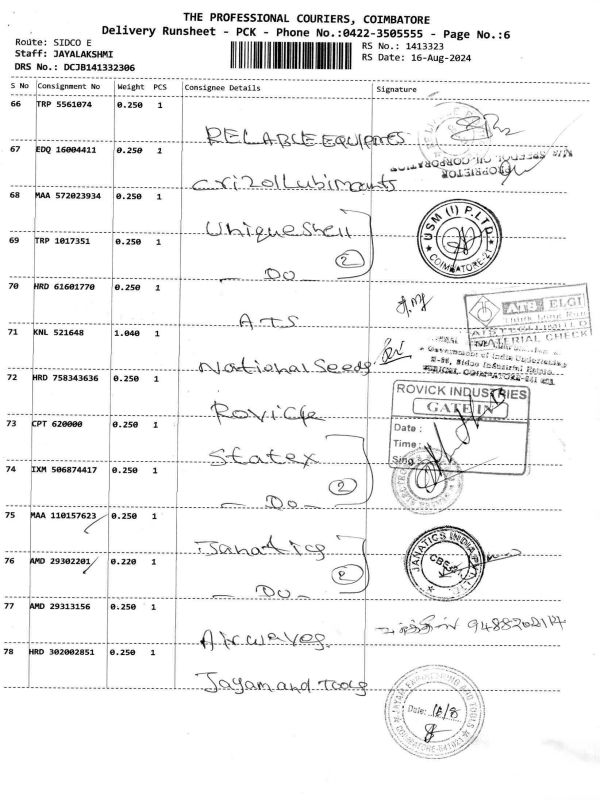 THE PROFESSIONAL COURIERS, COIMBATORE
Delivery Runsheet - PCK - Phone No.:0422-3505555 - Page No.:6
Route: SIDCO E
Staff: JAYALAKSHMI
DRS No.: DCJB141332306
RS No.: 1413323
RS Date: 16-Aug-2024
S No Consignment No Weight PCS Consignee Details Signature
66 TRP 5561074 0.250 1
RELABLE EQUIPMETS
67 EDQ 16004411 0.250 1
PROPRIETOR
Crizol Lubircants
68 MAA 572023934 0.250 1
Unique Shell
USM (I) P.LTD.
COIMBATORE-21
2
69 TRP 1017351 0.250 1
- Do -
70 HRD 61601770 0.250 1
ATS
ATS ELGI
MATERIAL CHECK
71 KNL 521648 1.040 1
National Seeds
72 HRD 758343636 0.250 1
Rovick
ROVICK INDUSTRIES
GATE IN
Date :
Time :
Sing
73 CPT 620000 0.250 1
Statex
2
74 IXM 506874417 0.250 1
- Do -
75 MAA 110157623 0.250 1
Janatics
JANATICS INDIA PVT LTD
CBE
2
76 AMD 29302201 0.220 1
- Do -
77 AMD 29313156 0.250 1
Airwaves
78 HRD 302002851 0.250 1
Jayam and Tools
Date: 16/8
COIMBATORE-641021